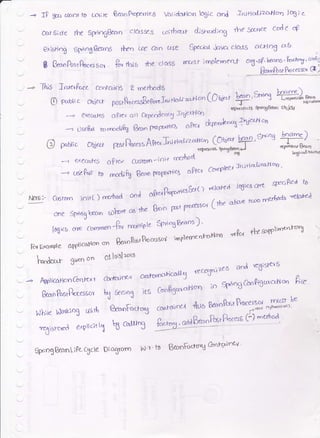 → If you want to write BeanProperties validation logic and Initialization logic
outside the SpringBean classes without disturbing the source code of
existing SpringBeans then we can use Special Java class acting as
BeanPostProcessor for this the class must implement org.sf.beans.factory.config.
BeanPostProcessor (I)
→ This Interface contains 2 methods
① public Object postProcessBeforeInitialization(Object bean, String bname)
represents SpringBean Object
→ executes after all Dependency Injection
→ useful to modify Bean properties after dependency Injection
② public Object postProcessAfterInitialization (Object bean, String bname)
→ executes after custom-init method
→ useful to modify Bean properties after complete Initialization.
Note:- Custom init() method and afterPropertiesSet() related logics are specified to
one Spring bean where as the Bean post processor (the above two methods related
logics are common for multiple SpringBeans).
For Example application on BeanPostProcessor implementation refer the supplementary
handout given on
→ ApplicationContext container automatically recognizes and registers
BeanPostProcessor by seeing its Configuration in Spring Configuration file
While Working with BeanFactory container this BeanPostProcessor must be
registered explicitly by calling factory.addBeanPostProcess(-) method
SpringBean Life Cycle Diagram w.r.to BeanFactory Container.